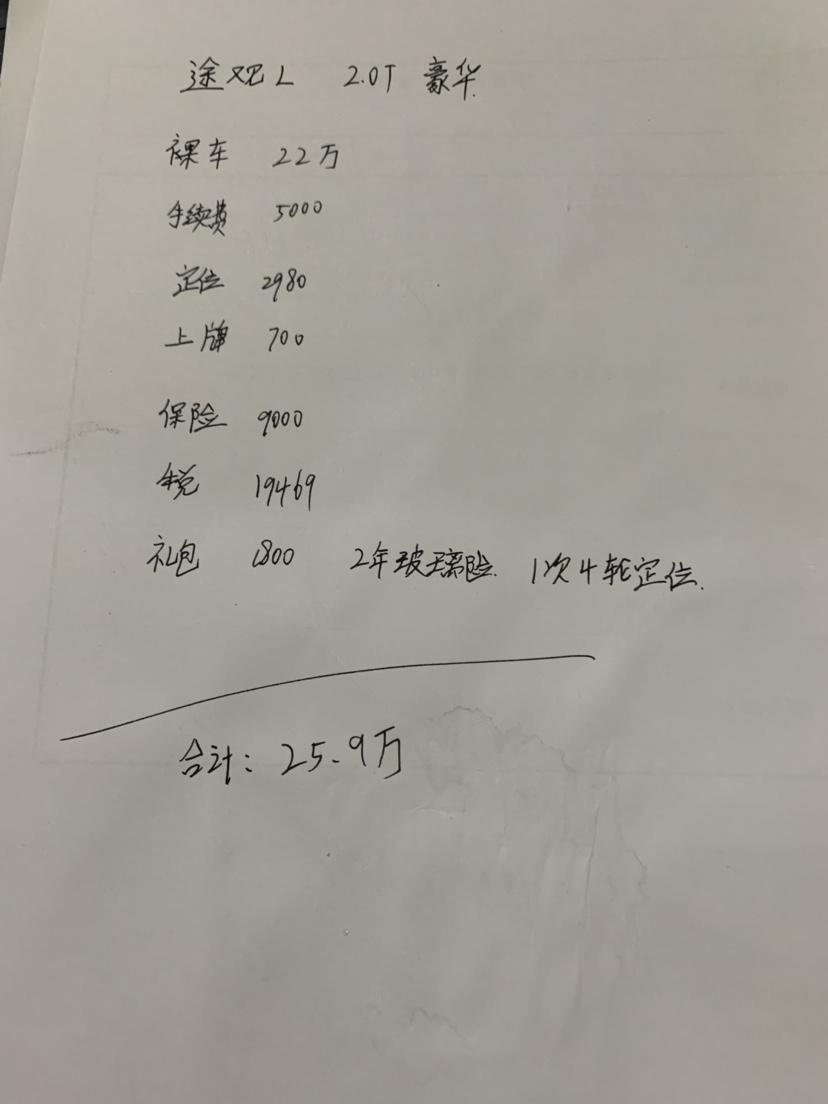 途观L 2.0T 豪华
裸车 22万
手续费 5000
定位 2980
上牌 700
保险 9000
税 19469
礼包 1800 2年玻璃险. 1次4轮定位.
合计: 25.9万